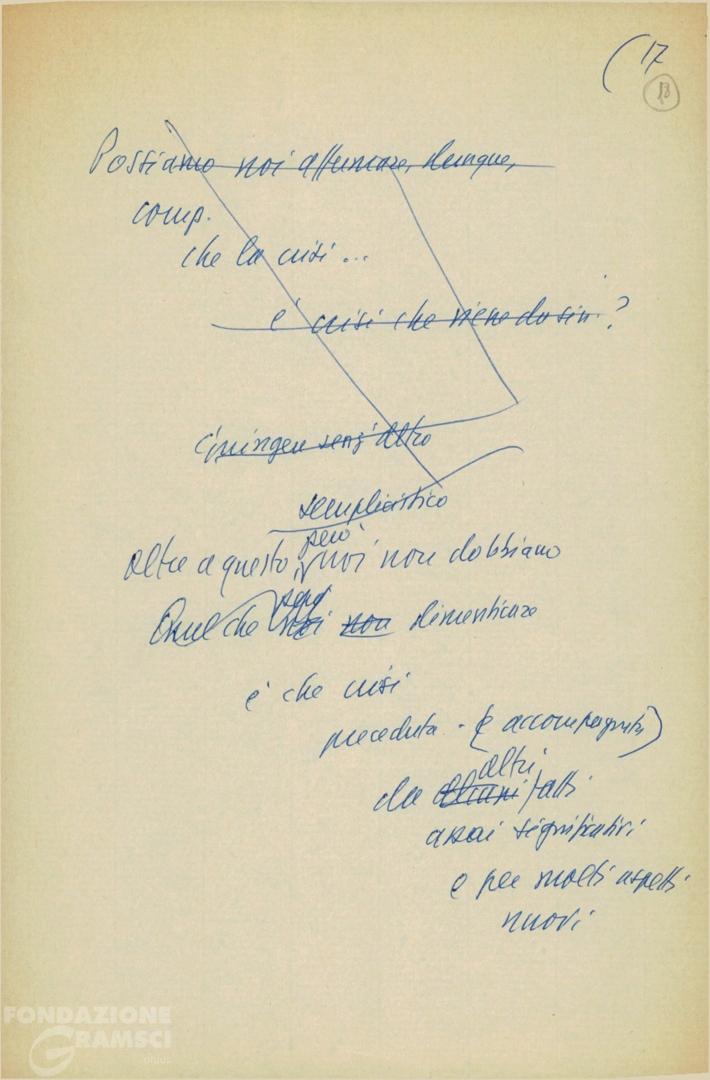 (17
13
Possiamo noi affermare, dunque,
comp.
che la crisi...
è crisi che viene da sin. ?
senz'altro
semplicistico
però
Oltre a questo, noi non dobbiamo
però
Quel che noi non dimenticare
è che crisi
preceduta - (e accompagnata)
altri
da alcuni fatti
assai significativi
e per molti aspetti
nuovi
FONDAZIONE
GRAMSCI
onlus